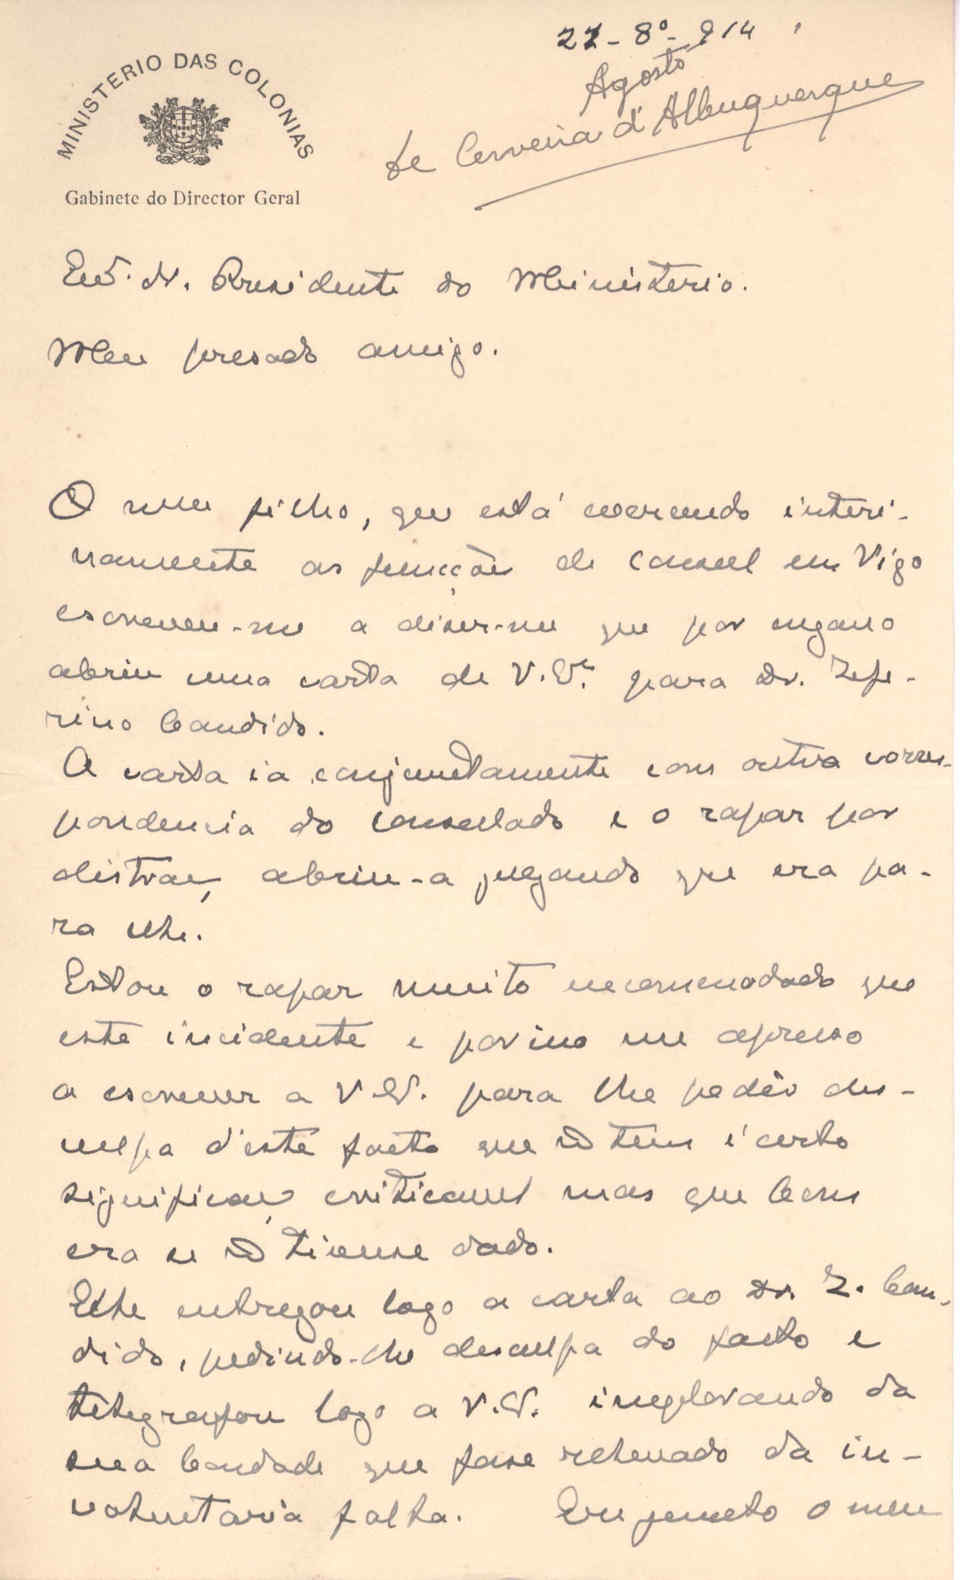 22-8º-914
Agosto
de Cerveira d'Albuquerque
MINISTERIO DAS COLONIAS
Gabinete do Director Geral
Exº. Sr. Presidente do Ministerio.
Meu presado amigo.
O meu filho, que está exercendo interi-
namente as funcções de Consul em Vigo
escreveu-me a diser-me que por engano
abriu uma carta de V. Exª. para Dr. Zefe-
rino Candido.
A carta ia conjunctamente com outra corres-
pondencia do Consulado e o rapaz por
distracção abriu-a julgando que era pa-
ra elle.
Estou o rapaz muito incomodado que
este incidente e por isso me apresso
a escrever a V. Ex. para lhe pedir des-
culpa d'este facto que não tem é certo
significação criticavel mas que bom
era se não tivesse dado.
Elle entregou logo a carta ao Dr. Z. Can-
dido, pedindo-lhe desculpa do facto e
telegrafou logo a V. Ex. implorando da
sua bondade que fosse relevado da in-
voluntaria falta. Eu junto o meu